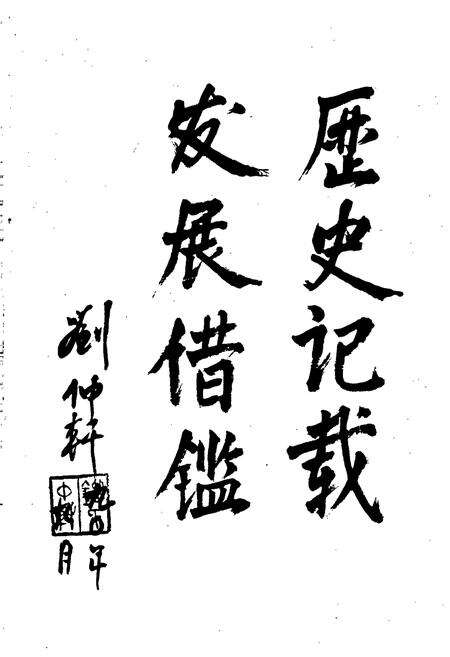 歷史记载
发展借鑑
劉仲轩
年
月